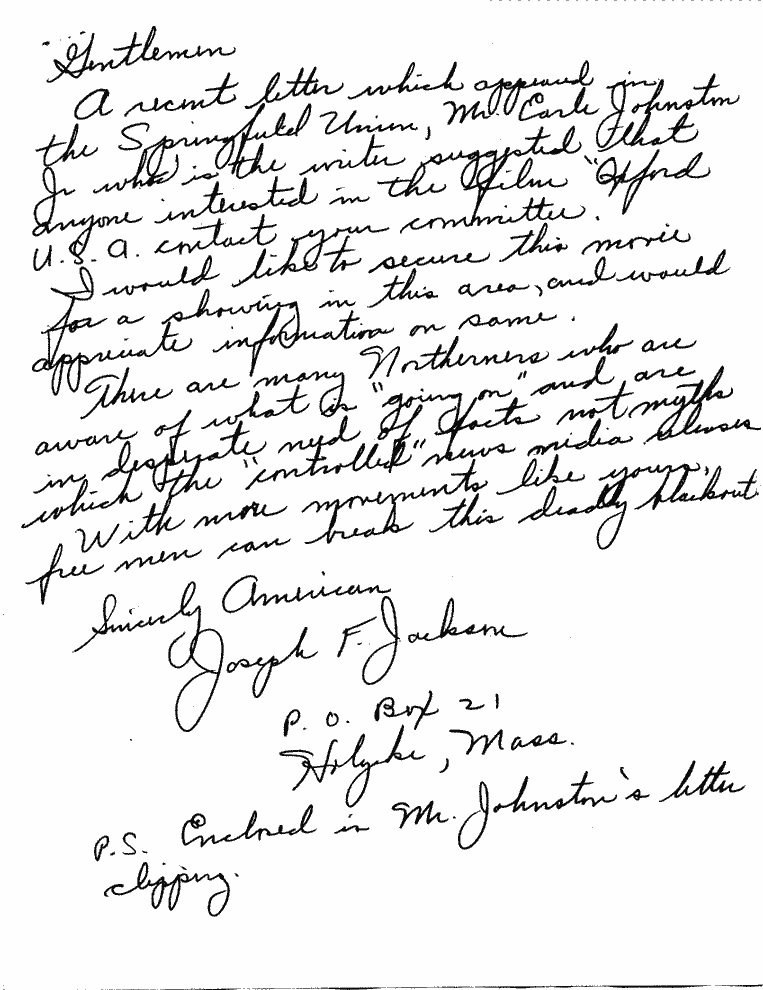 Gentlemen
A recent letter which appeared in
the Springfield Union, Mr. Earle Johnston
Jr who is the writer suggested that
anyone interested in the film "Oxford
U.S.A. contact your committee.
I would like to secure this movie
for a showing in this area, and would
appreciate information on same.
There are many Northerners who are
aware of what is "going on" and are
in desperate need of facts not myths
which the "controlled" news media releases
With more movements like yours,
free men can break this deadly blackout
Sincerly American
Joseph F. Jackson
P. O. Box 21
Holyoke, Mass.
P.S. Enclosed in Mr. Johnston's letter
clipping.